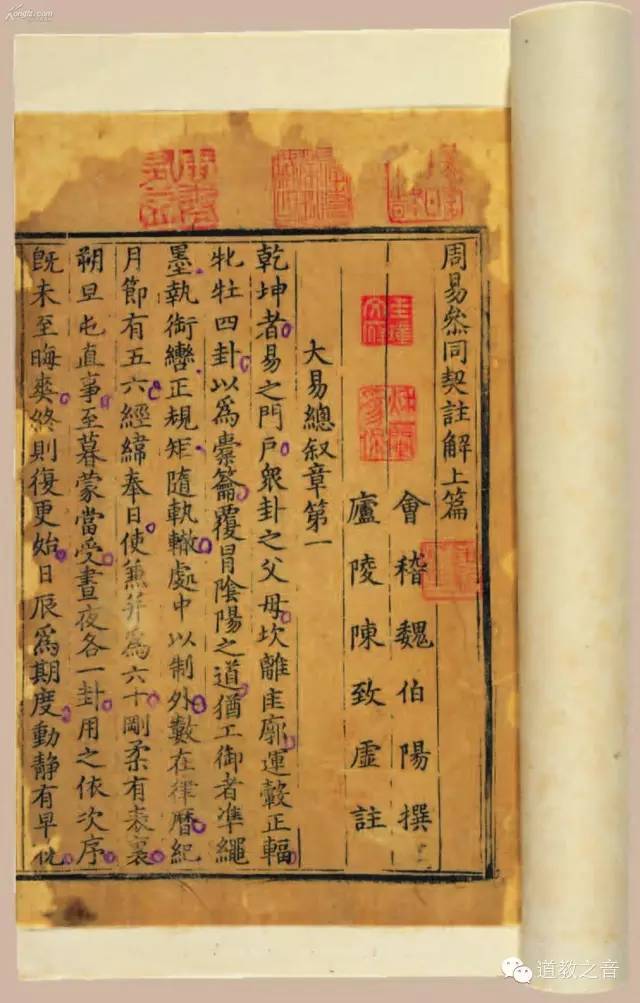 周易叅同契註解上篇
會稽魏伯陽撰
廬陵陳致虛註
大易總叙章第一
乾坤者易之門戶眾卦之父母坎離匡廓運轂正輻
牝牡四卦以爲槖籥覆冒陰陽之道猶工御者凖繩
墨執銜轡正規矩隨軌轍處中以制外數在律曆紀
月節有五六經緯奉日使蒹并爲六十剛柔有表裏
朔旦屯直事至暮蒙當受晝夜各一卦用之依次序
旣未至晦爽終則復更始日辰爲期度動靜有早晚
道教之音
Kongfz.com